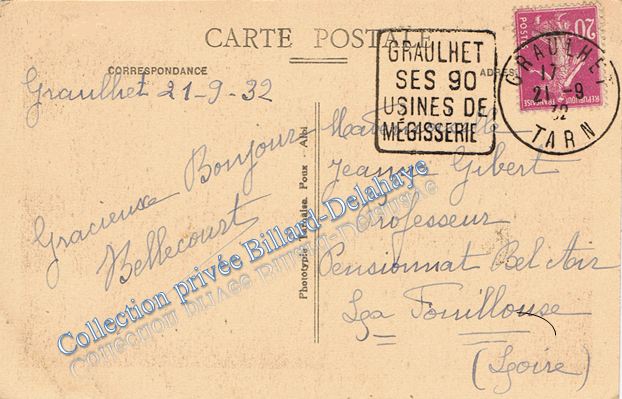 CARTE POSTALE
CORRESPONDANCE
ADRESSE
GRAULHET
SES 90
USINES DE
MÉGISSERIE
GRAULHET
17
21 -9
32
TARN
20
POSTES
REPUBLIQUE FRANÇAISE
Graulhet 21-9-32
Gracieux Bonjour
Bellecourt
Phototypie Tarnaise Poux - Albi
Mademoiselle
Jeanne Gibert
Professeur
Pensionnat Bel Air
La Fouillouse
(Loire)
Collection privée Billard-Delahaye